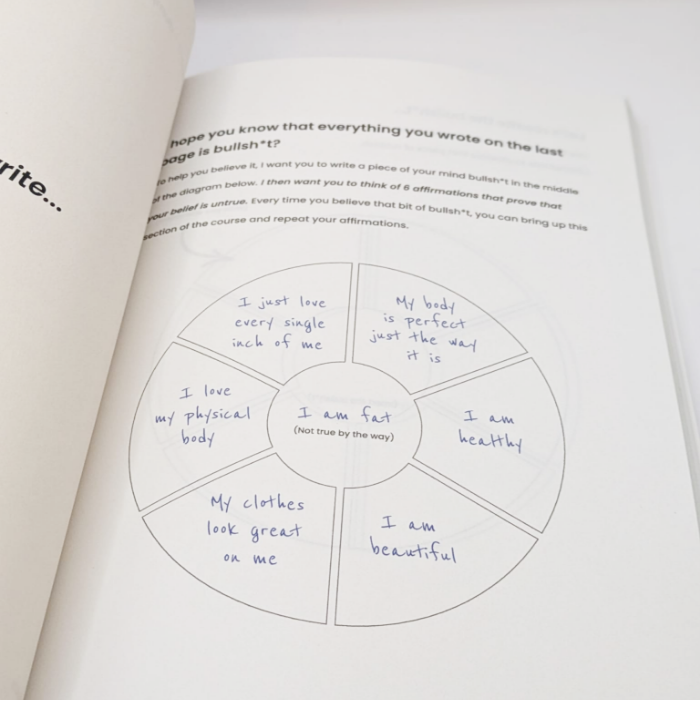 rite...
hope you know that everything you wrote on the last
page is bullsh*t?
To help you believe it, I want you to write a piece of your mind bullsh*t in the middle
of the diagram below. I then want you to think of 6 affirmations that prove that
your belief is untrue. Every time you believe that bit of bullsh*t, you can bring up this
section of the course and repeat your affirmations.
I just love
every single
inch of me
My body
is perfect
just the way
it is
I love
my physical
body
I am fat
(Not true by the way)
I am
healthy
My clothes
look great
on me
I am
beautiful